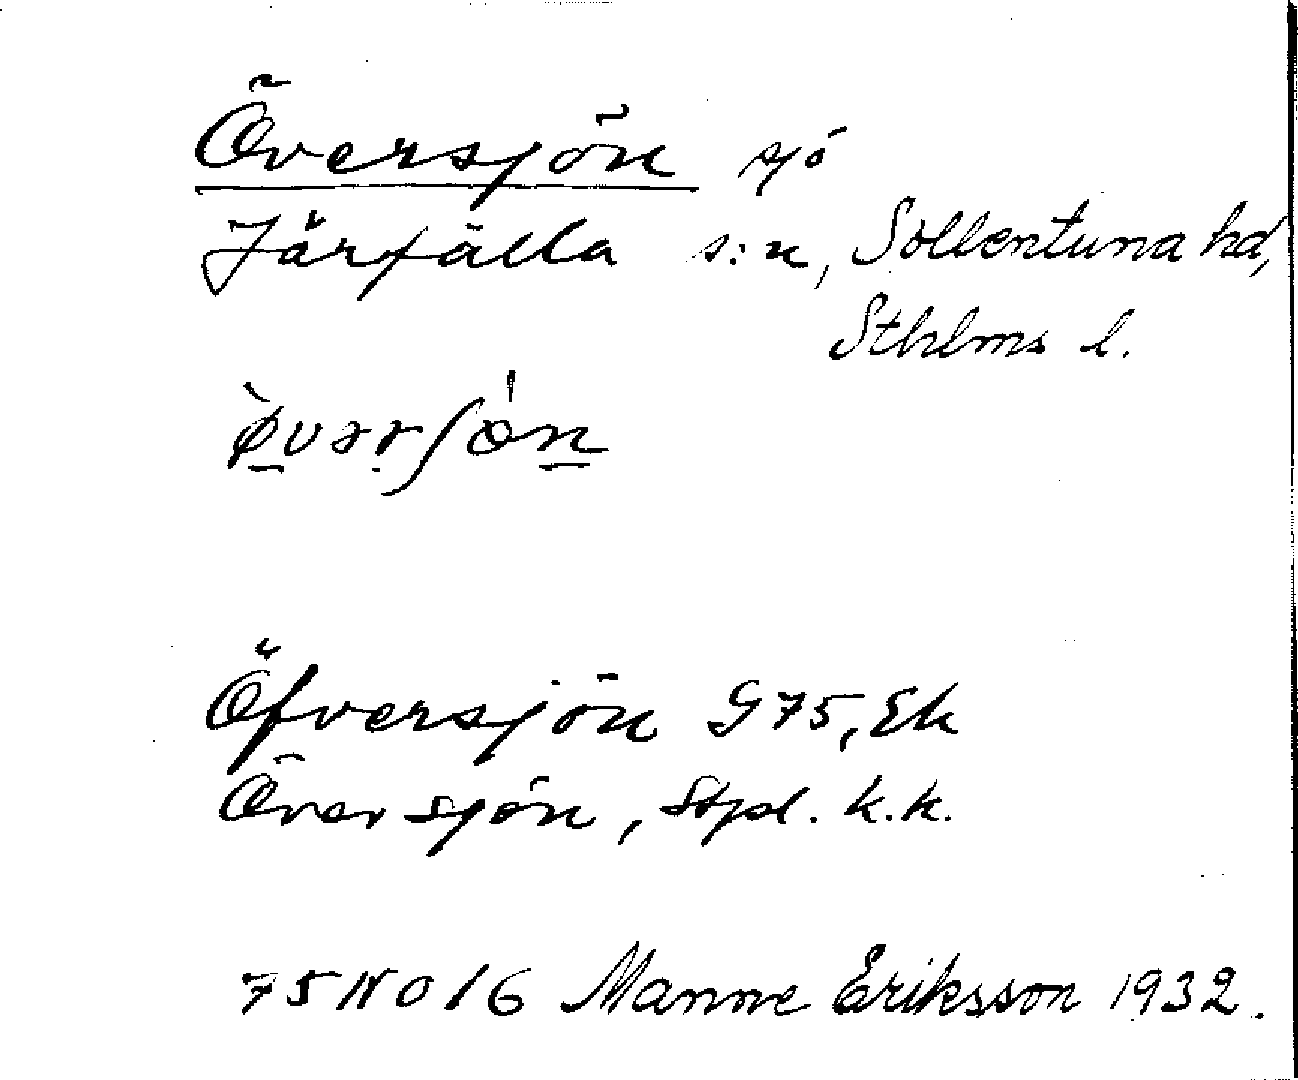 Översjön sjö
Järfälla s:n, Sollentuna hd,
Sthlms l.
Öfversjön G 75, Ek
Översjön, Stpl. k.k.
75 NO 16 Manne Eriksson 1932.